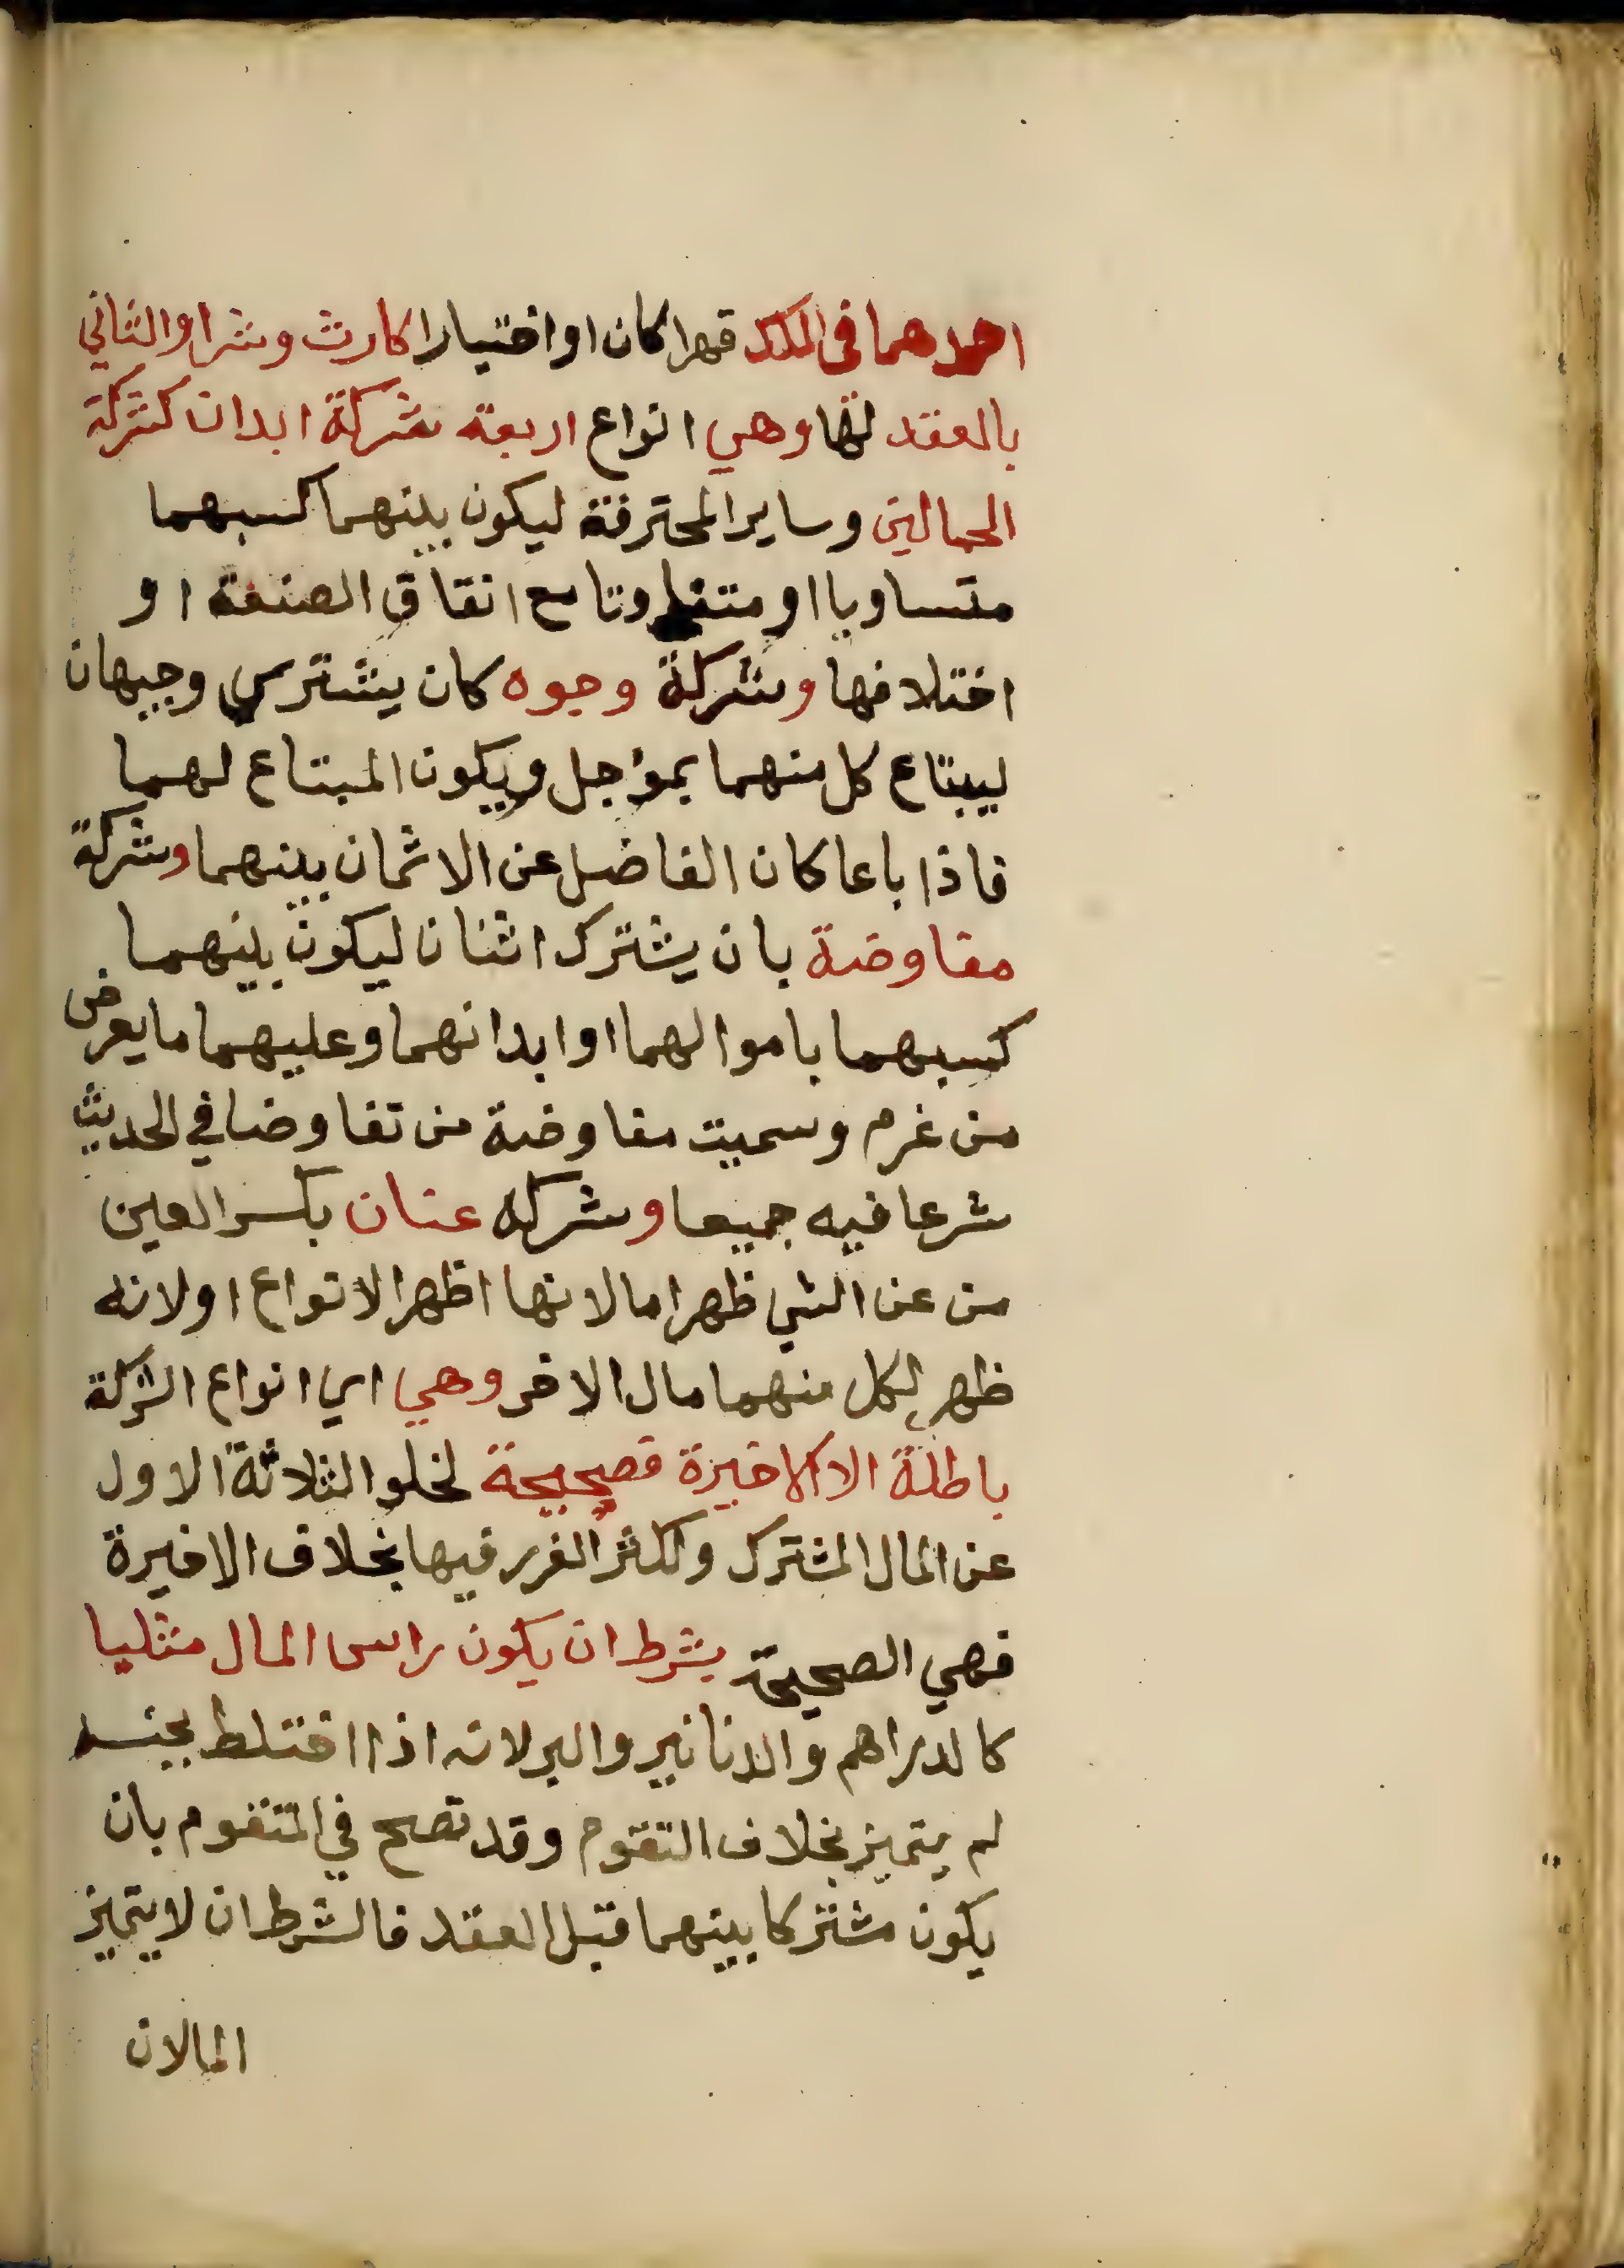 احدهما فى الملك قهرا كان او اختيارا كارث وشرا والثاني
بالعقد لها وهي انواع اربعة شركة ابدان كشركة
الحمالين وساير المحترفة ليكون بينهما كسبهما
متساويا او متفاوتا مع اتفاق الصنعة او
اختلافها وشركة وجوه كان يشتري وجيهان
ليبتاع كل منهما بمؤجل ويكون المبتاع لهما
فاذا باعا كان الفاضل عن الاثمان بينهما وشركة
مفاوضة بان يشترك اثنان ليكون بينهما
كسبهما باموالهما او ابدانهما وعليهما ما يعرض
من غرم وسميت مفاوضة من تفاوضا في الحديث
شرعا فيه جميعا وشركه عنان بكسر العين
من عن الشي ظهر اما لانها اظهر الانواع اولانه
ظهر لكل منهما مال الاخر وهي اي انواع الشركة
باطلة الا الاخيرة فصحيحة لخلو الثلاثة الاول
عن المال المشترك ولكثر الغرر فيها بخلاف الاخيرة
فهي الصحيحة بشرط ان يكون راس المال مثليا
كالدراهم والدنانير والبر لانه اذا اختلط بجنسه
لم يتميز بخلاف التقوم وقد تصح في المتقوم بان
يكون مشتركا بينهما قبل العقد فالشرط ان لا يتميز
المالان